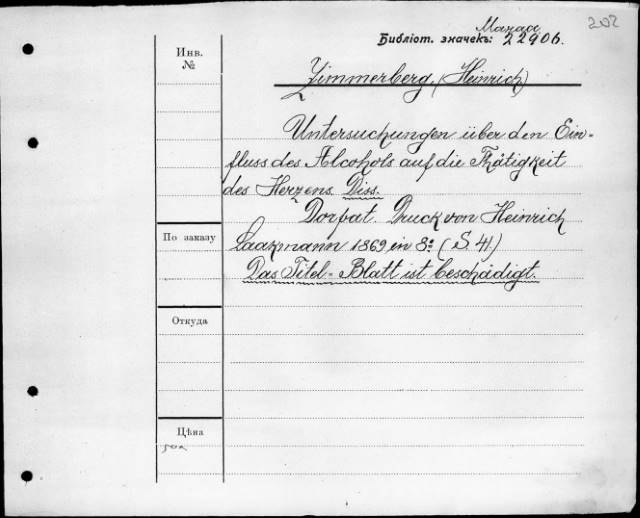 202
Магаз
Библіот. значекъ: 22906.
Инв.
№
Zimmerberg, (Heinrich)
Untersuchungen über den Ein=
fluss des Alcohols auf die Thätigkeit
des Herzens. Diss.
Dorpat. Druck von Heinrich
По заказу
Laakmann 1869 in 8º (S. 41)
Das Titel=Blatt ist beschädigt.
Откуда
Цѣна